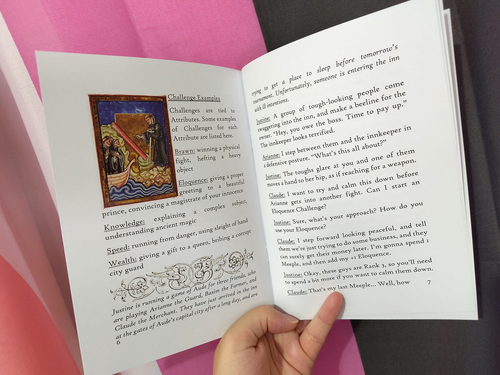 Challenge Examples
Challenges are tied to
Attributes. Some examples
of Challenges for each
Attribute are listed here.
Brawn: winning a physical
fight, hefting a heavy
object
Eloquence: giving a proper
greeting to a beautiful
prince, convincing a magistrate of your innocence
Knowledge: explaining a complex subject,
understanding ancient magic
Speed: running from danger, using sleight of hand
Wealth: giving a gift to a queen, bribing a corrupt
city guard
Justine is running a game of Aude for three friends, who
are playing Arianne the Guard, Basim the Farmer, and
Claude the Merchant. They have just arrived in the inn
at the gates of Aude's capital city after a long day, and are
6
trying to get a place to sleep before tomorrow's
tournament. Unfortunately, someone is entering the inn
with ill intentions.
Justine: A group of tough-looking people come
swaggering into the inn, and make a beeline for the
owner. "Hey, you owe the boss. Time to pay up."
The innkeeper looks terrified.
Arianne: I step between them and the innkeeper in
a defensive posture. "What's this all about?"
Justine: The toughs glare at you and one of them
moves a hand to her hip, as if reaching for a weapon.
Claude: I want to try and calm this down before
Arianne gets into another fight. Can I start an
Eloquence Challenge?
Justine: Sure, what's your approach? How do you
use your Eloquence?
Claude: I step forward looking peaceful, and tell
them we're just trying to do some business, and they
can surely get their money later. I'm gonna spend 1
Meeple, and then add my +1 Eloquence.
Justine: Okay, these guys are Rank 3, so you'll need
to spend a bit more if you want to calm them down.
Claude: That's my last Meeple... Well, how
7